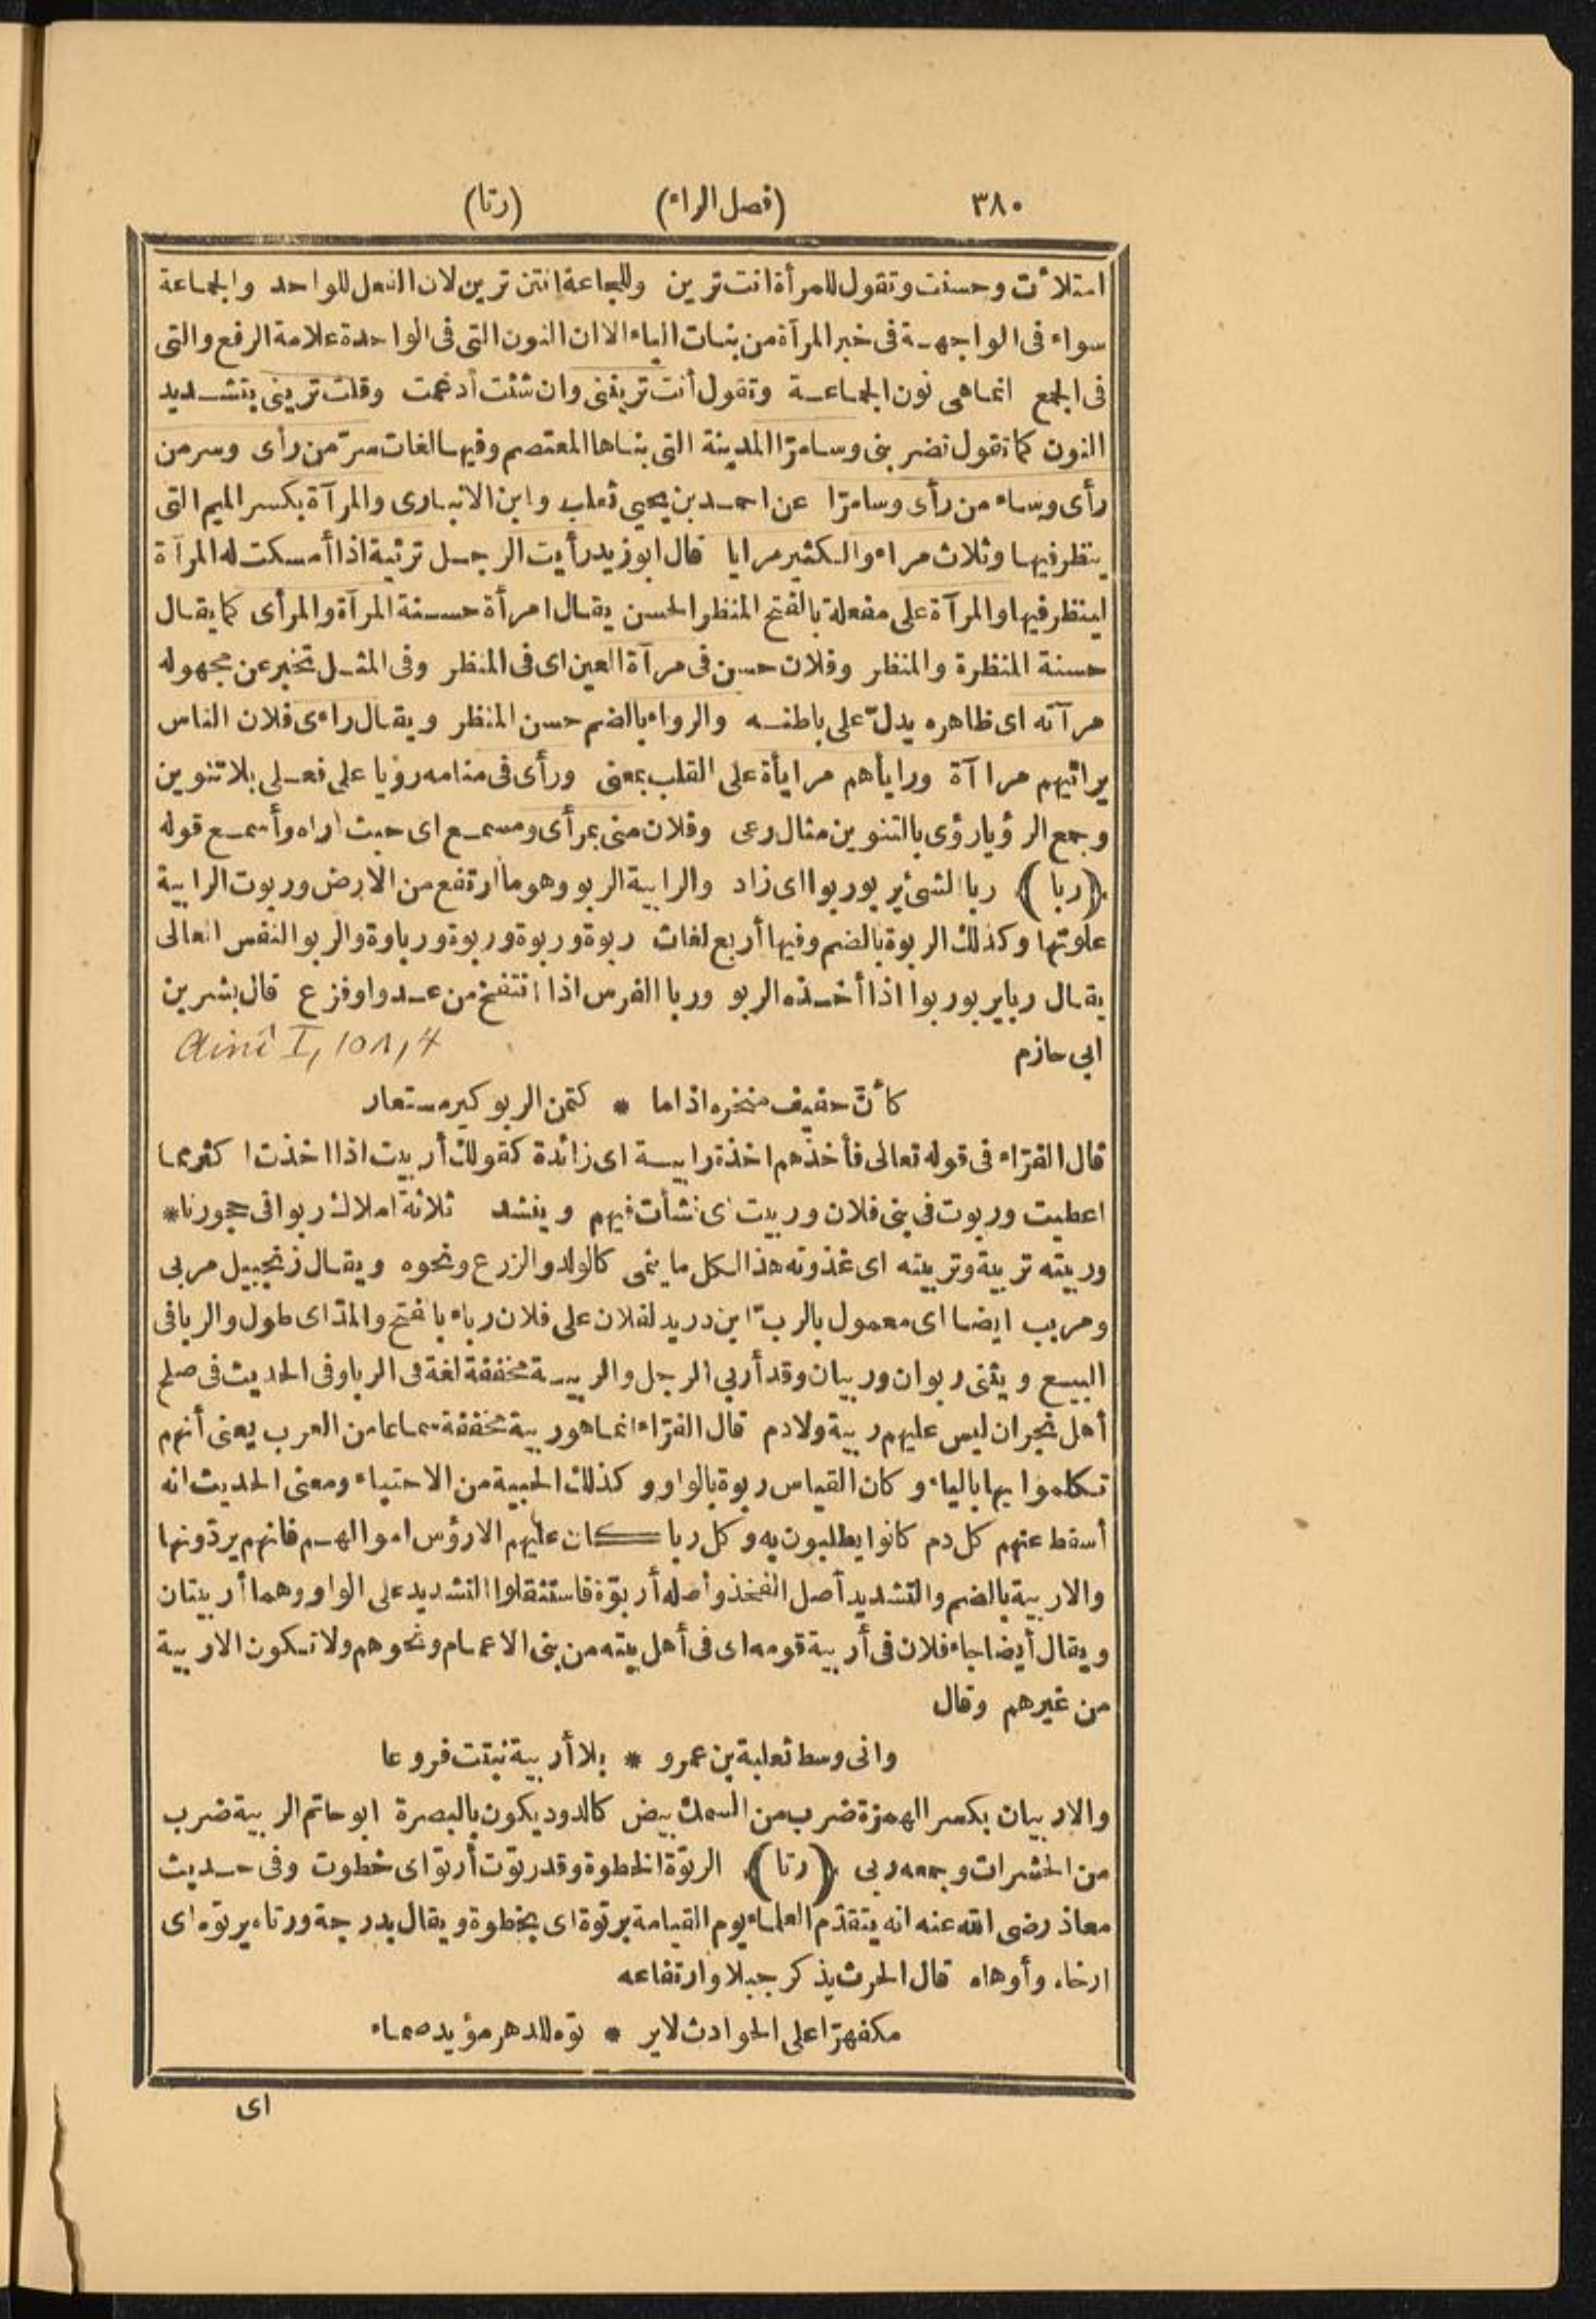 ٣٨٠ (فصل الراء) (رتا)
امتلأت وحسنت وتقول للمرأة انت ترين وللجماعة انتن ترين لان الفعل للواحد والجماعة
سواء فى المواجهة فى خبر المرآة من بنات الياء الا ان النون التى فى الواحدة علامة الرفع والتى
فى الجمع انما هى نون الجماعة وتقول أنت ترينى وان شئت أدغمت وقلت ترينى بتشديد
النون كما تقول تضربنى وسامرّا المدينة التى بناها المعتصم وفيها لغات سرّ من رأى وسر من
رأى وساء من رأى وسامرّا عن احمد بن يحيى ثعلب وابن الانبارى والمرآة بكسر الميم التى
ينظر فيها وثلاث مراء والكثير مرايا قال ابو زيد رأيت الرجل ترئية اذا أمسكت له المرآة
لينظر فيها والمرآة على مفعلة بالفتح المنظر الحسن يقال امرأة حسنة المرآة والمرأى كما يقال
حسنة المنظرة والمنظر وفلان حسن فى مرآة العين اى فى المنظر وفى المثل تخبر عن مجهوله
مرآته اى ظاهره يدلّ على باطنه والرواء بالضم حسن المنظر ويقال راءى فلان الناس
يرائيهم مراآة ورايأهم مرايأة على القلب بمعنى ورأى فى منامه رؤيا على فعلى بلا تنوين
وجمع الرؤيا رؤى بالتنوين مثال رعى وفلان منى بمرأى ومسمع اى حيث اراه وأسمع قوله
﴿ربا﴾ ربا الشئ يربو ربوا اى زاد والرابية الربو وهو ما ارتفع من الارض وربوت الرابية
علوتها وكذلك الربوة بالضم وفيها أربع لغات ربوة وربوة وربوة ورباوة والربو النفس العالى
يقال ربا يربو ربوا اذا أخذه الربو وربا الفرس اذا انتفخ من عدو او فزع قال بشر بن
ابى حازم Ainî I, 101, 4
كأنّ حفيف منخره اذا ما * كتمن الربو كير مستعار
قال الفرّاء فى قوله تعالى فأخذهم اخذة رابية اى زائدة كقولك أربيت اذا اخذت اكثر مما
اعطيت وربوت فى بنى فلان وربيت اى نشأت فيهم وينشد ثلاثة املاك ربوا فى حجورنا *
وربيته تربية وتربيته اى غذوته هذا لكل ما ينمى كالولد والزرع ونحوه ويقال زنجبيل مربى
ومربب ايضا اى معمول بالربّ ابن دريد لفلان على فلان رباء بالفتح والمدّ اى طول والربا فى
البيع ويثنى ربوان وربيان وقد أربى الرجل والربية مخففة لغة فى الربا وفى الحديث فى صلح
أهل نجران ليس عليهم ربية ولا دم قال الفرّاء انما هو ربية مخففة سماعا من العرب يعنى أنهم
تكلموا بها بالياء وكان القياس ربوة بالواو وكذلك الحبية من الاحتباء ومعنى الحديث انه
أسقط عنهم كل دم كانوا يطلبون به وكل ربا كان عليهم الا رؤس اموالهم فانهم يردّونها
والاربية بالضم والتشديد أصل الفخذ وأصله أربوّة فاستثقلوا التشديد على الواو وهما أربيتان
ويقال أيضا جاء فلان فى أربية قومه اى فى أهل بيته من بنى الاعمام ونحوهم ولا تكون الاربية
من غيرهم وقال
وانى وسط ثعلبة بن عمرو * بلا أربية نبتت فروعا
والاربيان بكسر الهمزة ضرب من السمك بيض كالدود يكون بالبصرة ابو حاتم الربية ضرب
من الحشرات وجمعه ربى ﴿رتا﴾ الرتوة الخطوة وقد رتوت أرتو اى خطوت وفى حديث
معاذ رضى الله عنه انه يتقدّم العلماء يوم القيامة برتوة اى بخطوة ويقال بدرجة ورتاه يرتوه اى
ارخاه وأوهاه قال الحرث يذكر جبلا وارتفاعه
مكفهرّا على الحوادث لاير * توه للدهر مؤيد صماء
اى